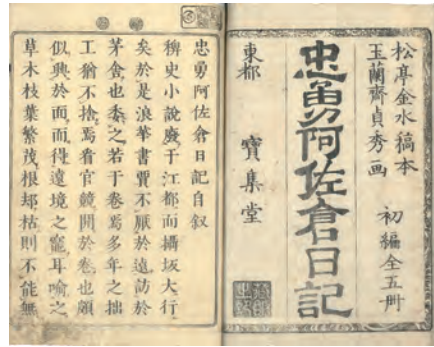 松亭金水稿本
玉蘭齋貞秀画
初編全五冊
忠勇阿佐倉日記
東都 寶集堂
忠勇阿佐倉日記自叙
稗史小説廢于江都而攝坂大行
矣於是浪華書賈不厭於遠訪於
茅舍也委之若于卷焉多年之拙
工猶不捨焉看官競閲於卷也頗
似興於面而得遠境之寵耳喻之
草木枝葉繁茂根却枯則不能無